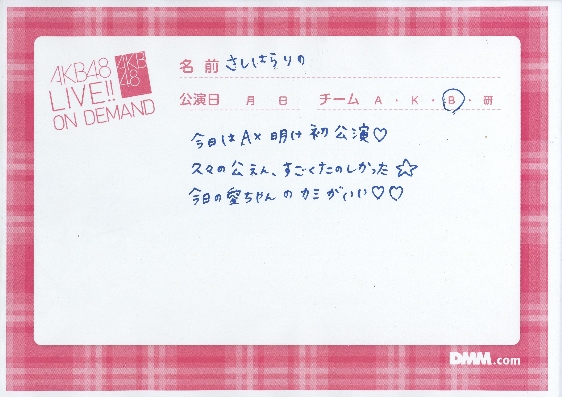 AKB48
LIVE!!
ON DEMAND
AKB
48
名前 さしはらりの
公演日 月 日 チーム A・K・B・研
今日はAX明け初公演♡
久々の公えん、すごくたのしかった☆
今日の愛ちゃんのカミがいい♡♡
DMM.com